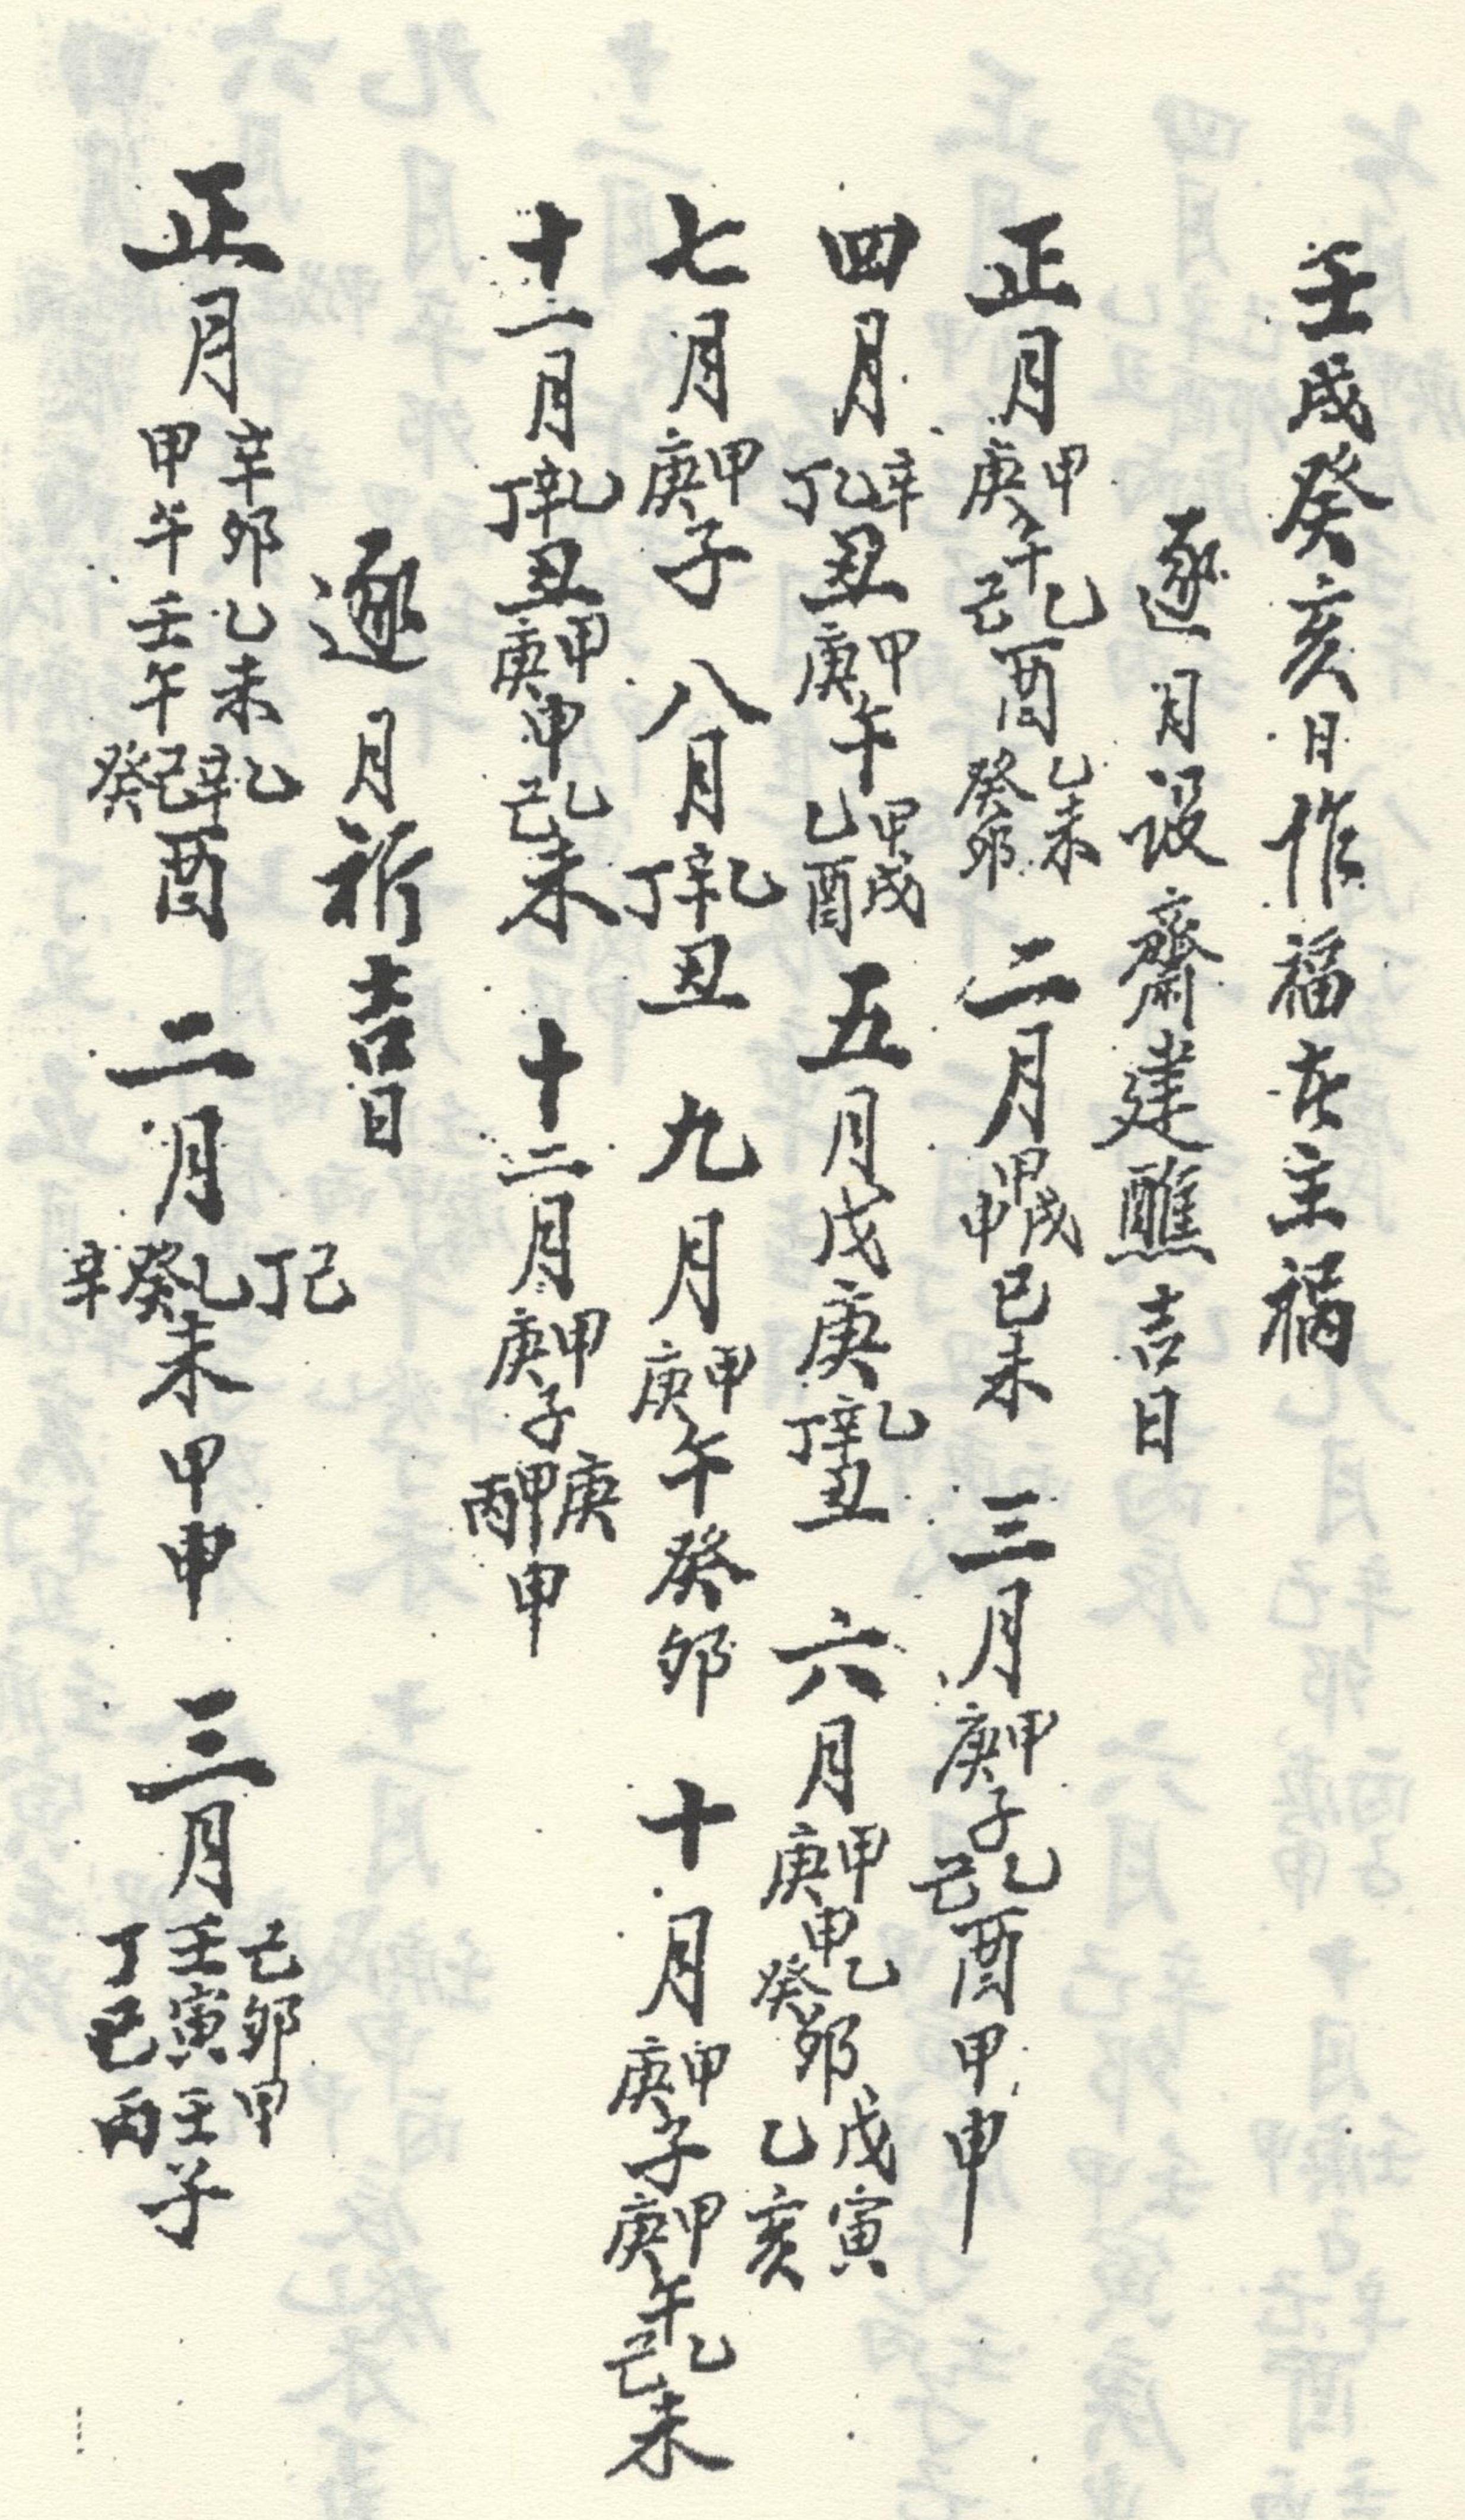 壬戌癸亥日作福者主禍
逐月設齋建醮吉日
正月甲庚午乙己酉乙未癸卯 二月甲戌甲申己未 三月甲庚子乙己酉甲申
四月辛乙丁丑甲庚午甲戌乙酉 五月戊庚乙辛丁丑 六月甲庚申乙癸卯戊寅乙亥
七月甲庚子 八月乙辛丁丑 九月甲庚午癸卯 十月甲庚子甲庚午乙己未
十一月乙辛丁丑甲庚申乙己未 十二月甲庚子庚甲丙申
逐月祈吉日
正月辛卯乙未乙辛甲午壬午己癸酉 二月丁己乙癸辛未甲申 三月己卯甲壬寅壬丁巳丙子